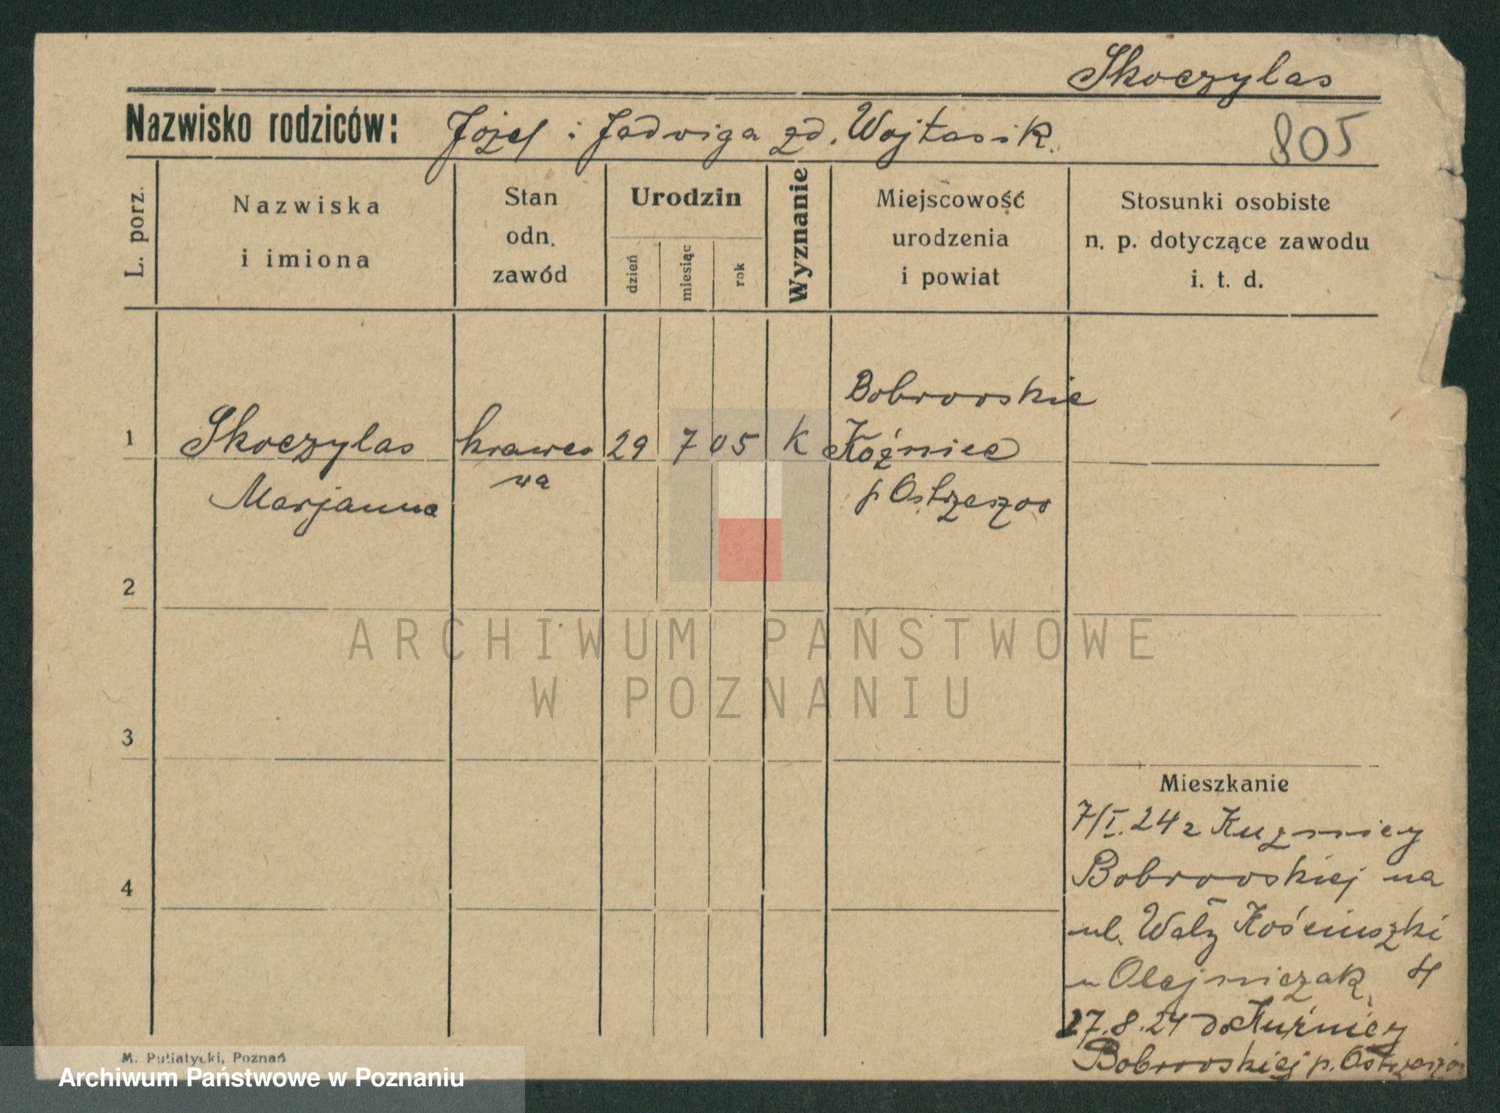 Skoczylas
Nazwisko rodziców: Józef i Jadwiga zd. Wojtasik.
805
L. porz.
Nazwiska
i imiona
Stan
odn.
zawód
Urodzin
dzień
miesiąc
rok
Wyznanie
Miejscowość
urodzenia
i powiat
Stosunki osobiste
n. p. dotyczące zawodu
i. t. d.
1
Skoczylas
Marjanna
krawco
wa
29 7 05 K
Bobrowskie
Koźnice
p Ostrzeszow
2
3
4
ARCHIWUM PAŃSTWOWE
W POZNANIU
Mieszkanie
7/I.24 z Kuznicy
Bobrowskiej na
ul. Wały Kościuszki
u Olejniczak 4
27.8.24 do Kuźnicy
Bobrowskiej p. Ostrzeszów
M. Putiatycki, Poznań
Archiwum Państwowe w Poznaniu